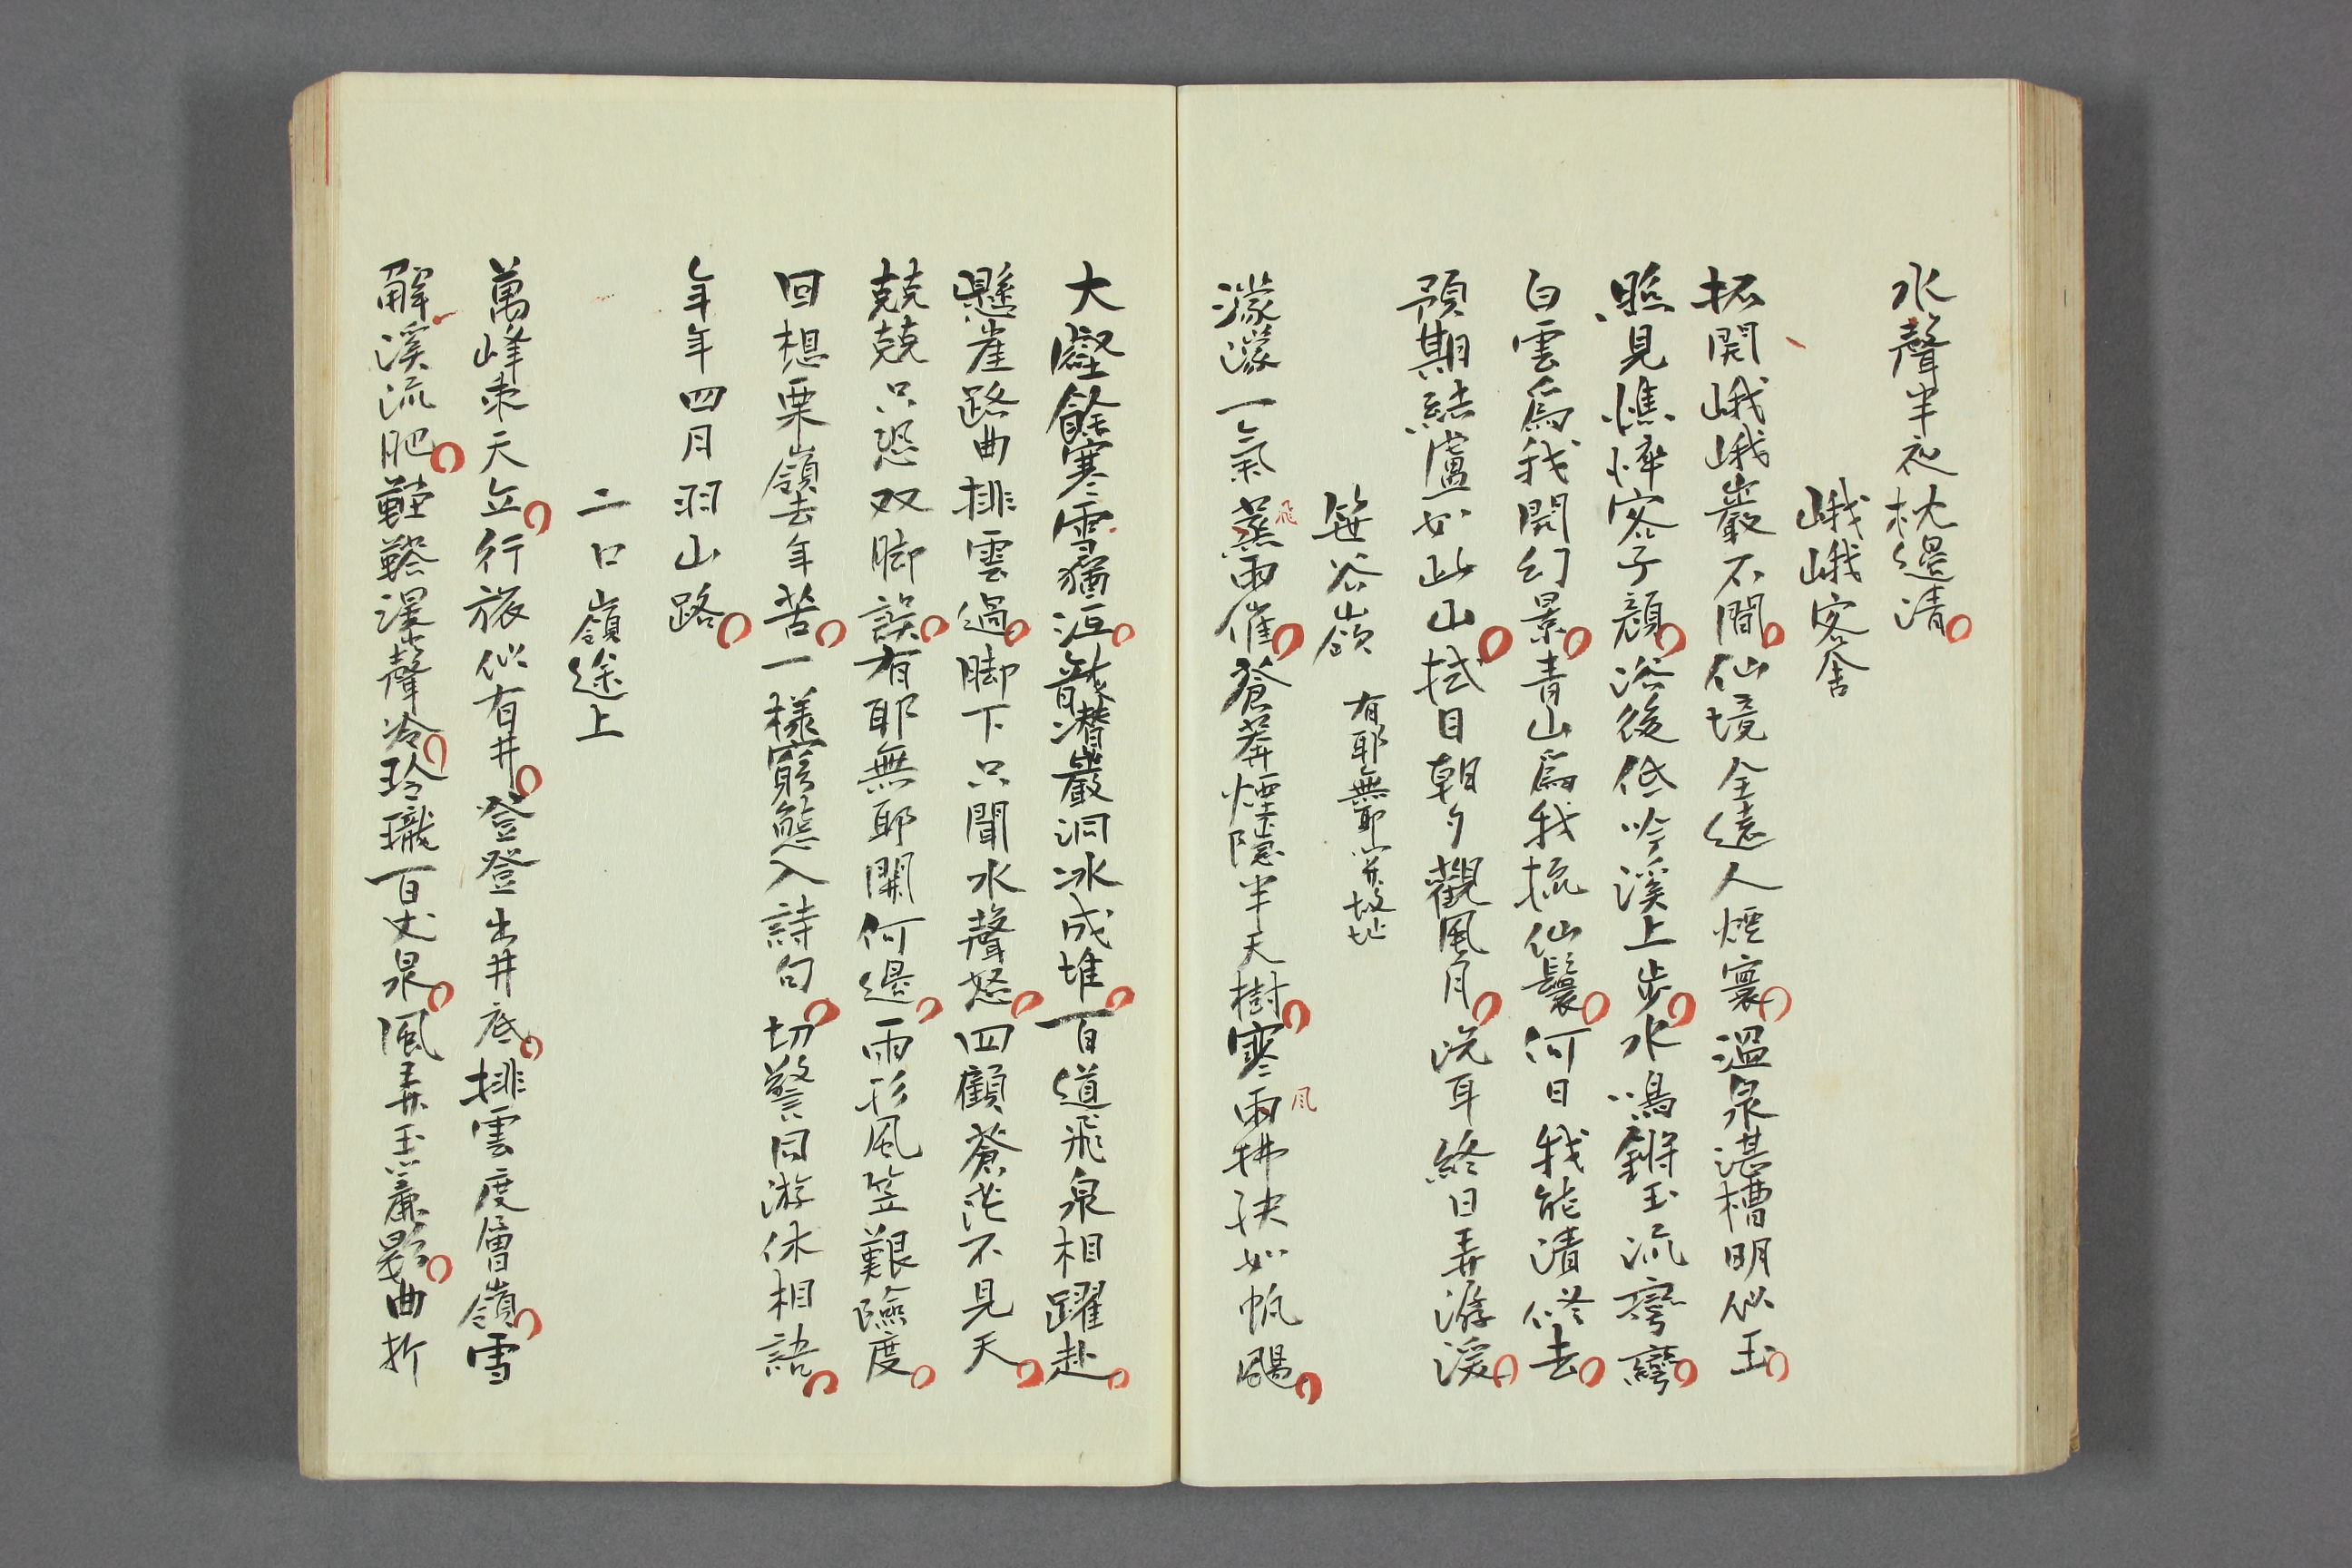 水聲半夜枕邊清
峨峨客舍
拓開峨峨巖不間仙境全遠人煙寰溫泉湛槽明似玉
照見憔悴客子顏浴後低吟溪上步水鳴鏘玉流彎彎
白雲為我開幻景青山為我梳仙鬟何日我能漬修去
預期結盧如此山拭目朝夕觀風月洗耳終日弄潺湲
笹谷嶺 有耶無耶關址
濛濛一氣蒸雨催蒼莽煙隱半天樹寒雨拂袂如帆颺
飛
風
大壑餘寒雪猶沍龍潛巖洞冰成堆百道飛泉相躍赴
懸崖路曲排雲過脚下只聞水聲怒四顧蒼茫不見天
兢兢只恐双脚誤有耶無耶關何邊雨衫風笠艱險度
回想栗嶺去年苦一樣窮態入詩句切警同游休相語
年年四月羽山路
二口嶺途上
萬峰刺天立行旅似在井登登出井底排雲度層嶺雪
解溪流肥鞺鞳溪聲冷玲瓏百丈泉風弄玉簾影曲折